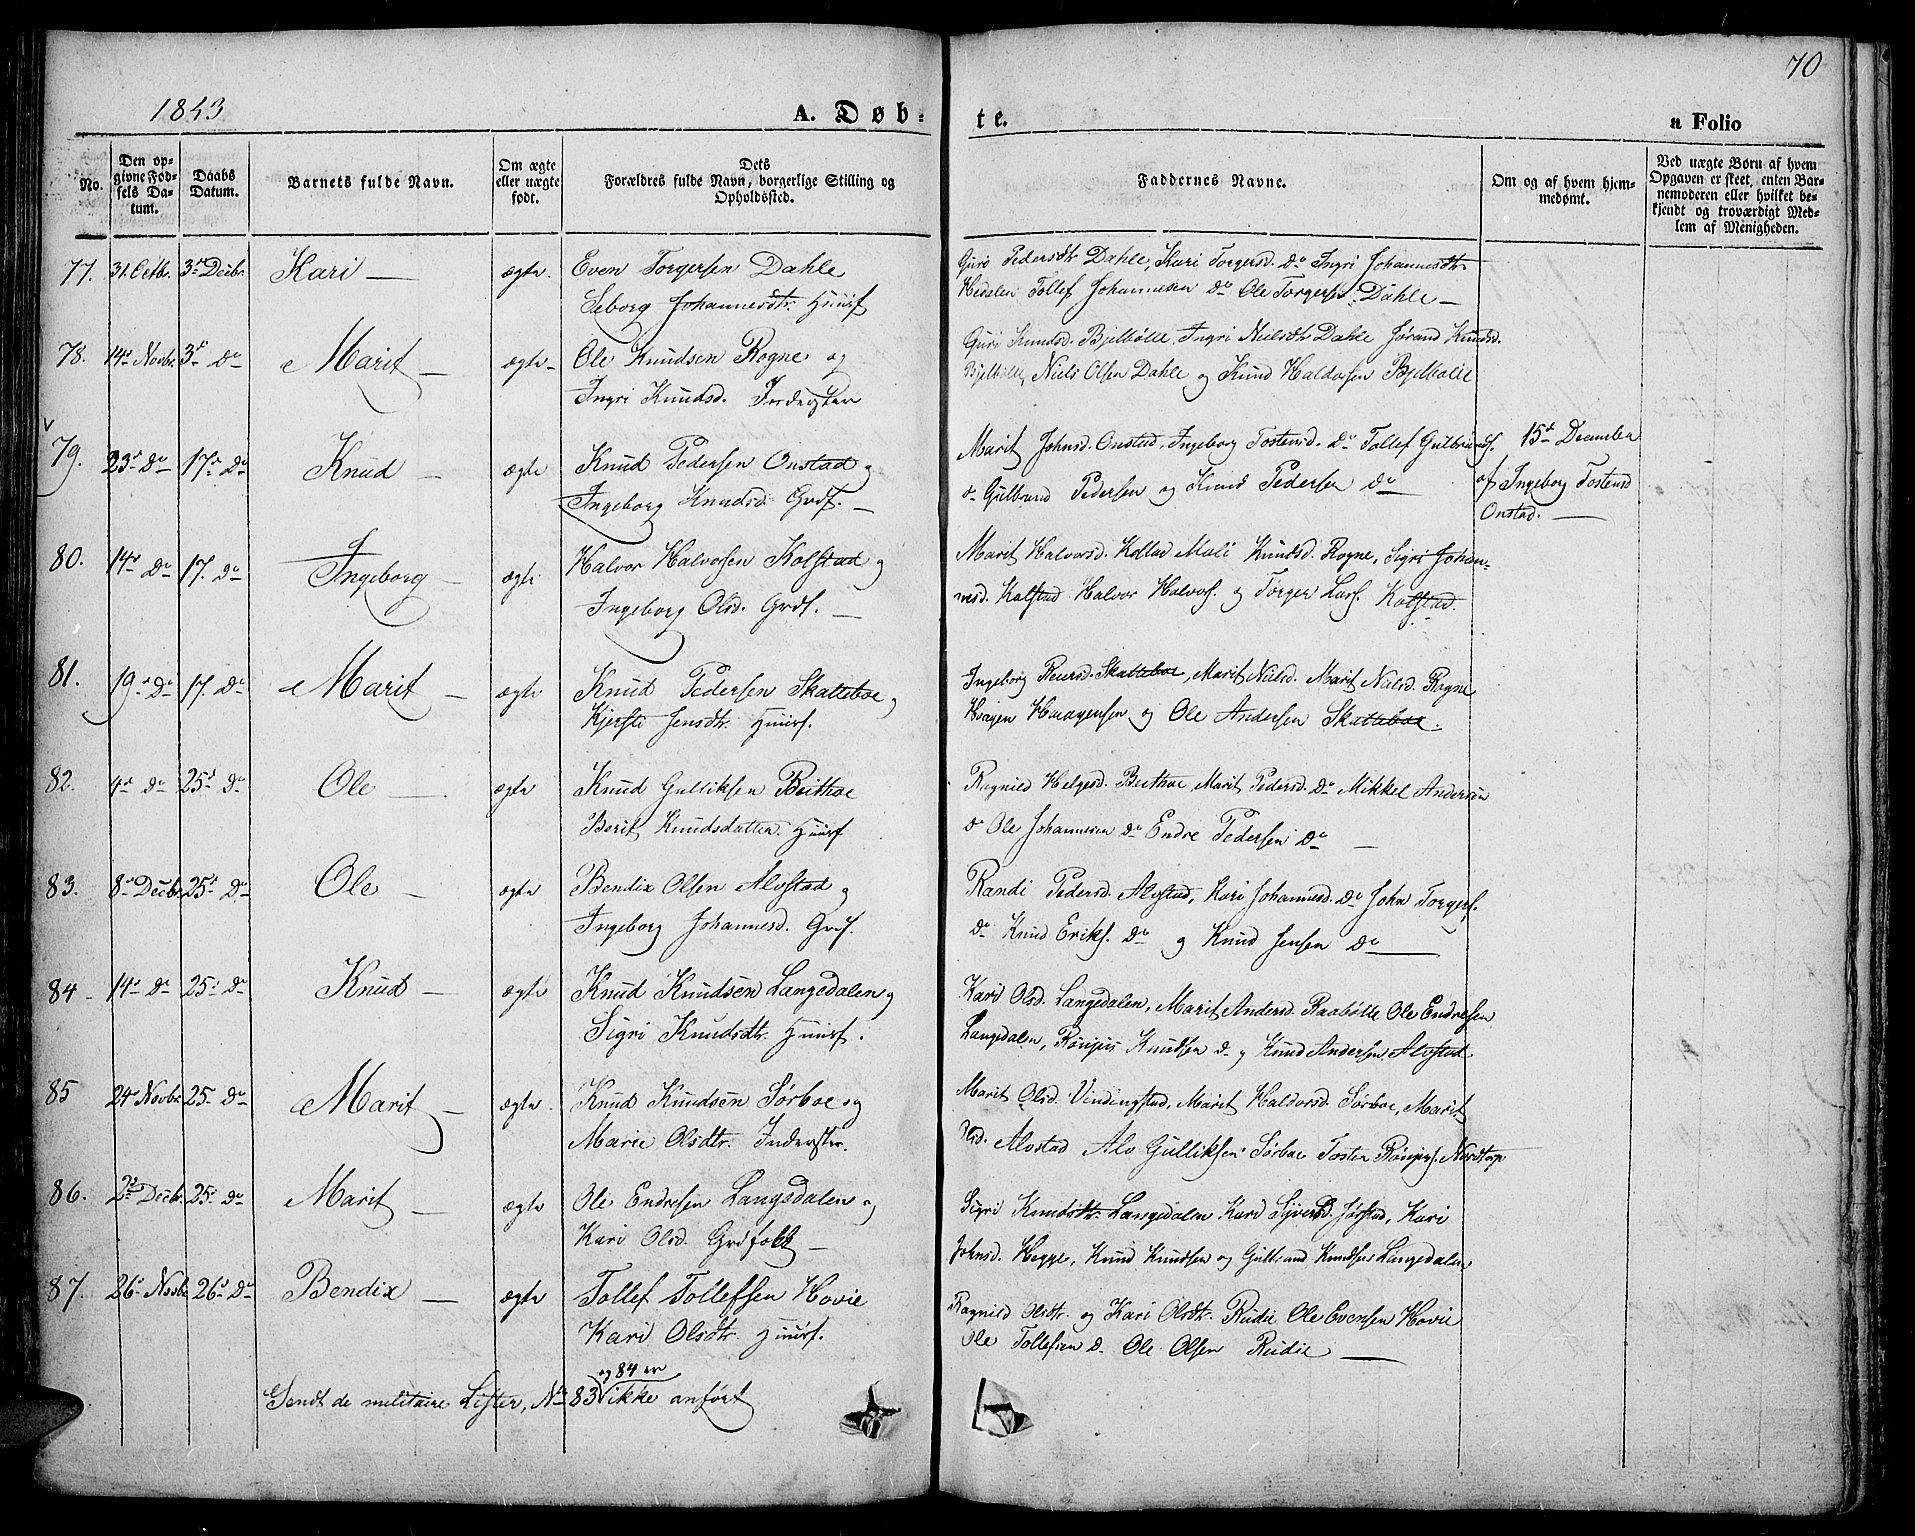 70
1843
A. Døb-
te.
a Folio
No.
Den op-
givne Fød-
sels Da-
tum.
Daabs
Datum.
Barnets fulde Navn.
Om ægte
eller uægte
født.
Dets
Forældres fulde Navn, borgerlige Stilling og
Opholdssted.
Faddernes Navne.
Om og af hvem hjem-
medømt.
Ved uægte Børn af hvem
Opgaven er skeet, enten Bar-
nemoderen eller hvilket be-
kjendt og troværdigt Med-
lem af Menigheden.
77. 31 Octb. 3die Decbr. Kari — ægte. Even Torgersen Dahle
Seborg Johannesdtr. Huusf
Guri Pedersdtr Dahle, Kari Torgersd. Do Ingri Johannesdtr
Hedalen Tollef Johannesen Do Ole Torgers. Dahle —
78. 14d Novbr. 3d Do Marit — ægte- Ole Knudsen Rogne og
Ingri Knudsd. Inderster
Guri Knudsd. Bjelbølle, Ingri Nielsdtr Dahle Jørand Knudsd.
Bjelbølle, Niels Olsen Dahle og Knud Haldorsen Bjelbølle
79. 23d Do 17d Do Knud — ægte Knud Pedersen Onstad og
Ingeborg Knudsd. Grdf. —
Marit Johnsd. Onstad, Ingeborg Tostensd. Do Tollef Gulbrandsf.
Do Gulbrand Pedersen og Knud Pedersen Do —
15d December
af Ingeborg Tostensd
Onstad. —
80. 14d Do 17. Do Ingeborg — ægte Halvor Halvorsen Kolstad og
Ingeborg Olsd. Grdf. —
Marit Halvorsd. Kolstad Mali Knudsd. Rogne, Sigri Johan-
nesd. Kolstad Halvor Halvors. og Torger Lars. Kolstad.
81. 19d Do 17. Do Marit — ægte Knud Pedersen Skatteboe og
Kjersti Jensdtr. Huusf.
Ingeborg Reiersd. Skatteboe, Marit Nielsd. Marit Nielsd. Rogne
Haagen Haagensen og Ole Andersen Skatteboe.
82. 4d Do 25d Do Ole — ægte Knud Gulliksen Beithoe
Berit Knudsdatter. Huusf
Ragnild Helgesd. Beithoe Marit Pedersd. Do Mikkel Andersen
Do Ole Johannesen Do Endre Pedersen Do —
83. 8d Decbr. 25d Do Ole — ægte Bendix Olsen Alvstad og
Ingeborg Johannesd. Grdf.
Randi Pedersd. Alvstad, Kari Johannesd. Do John Torgers.
Do Knud Eriks. Do og Knud Jensen Do —
84 - 14d Do 25d Do Knud — ægte Knud Knudsen Langedalen og
Sigri Knudsdtr. Huusf.
Kari Olsd. Langedalen, Marit Andersd. Raabølle Ole Endresen
Langedalen, Knudsen Do og Knud Andersen Alvstad
85 24d Novbr. 25d Do Marit — ægte Knud Knudsen Sørboe og
Marie Olsdtr. Inderster.
Marit Olsd. Vindingstad, Marit Haldorsd. Sørboe, Marit
Olsd. Alvstad Alv Gulliksen Sørboe Tosten Nordtorp
86. 2d Decbr. 25d Do Marit — ægte Ole Endresen Langedalen og
Kari Olsd. Grdfolk —
Sigri Knudsdtr. Langedalen Kari Syversd. Jørstad, Kari
Johnsd. Hegge, Knud Knudsen og Gulbrand Knudsen Langedalen
87. 26d Novbr 26d Do Bendix — ægte Tollef Tollefsen Hovie
Kari Olsdtr. Huusf.
Ragnild Olsdtr. og Kari Olsdtr. Rudie Ole Evensen Hovie
Ole Tollefsen D. Ole Olsen Rudie —
og 84 er
Sendt de militaire Lister, No 83 ikke anført